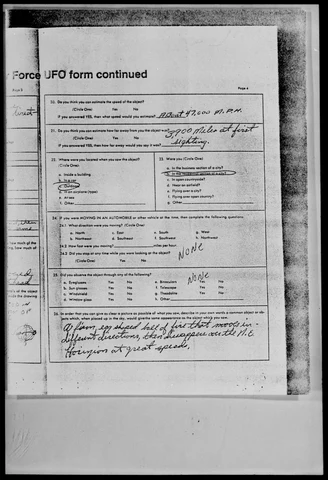 Force UFO form continued
Page 4
20. Do you think you can estimate the speed of the object?
(Circle One) Yes No
If you answered YES, then what speed would you estimate? About 47,000 M.P.H.
21. Do you think you can estimate how far away from you the object was?
(Circle One) Yes No
If you answered YES, then how far away would you say it was? 3,000 miles at first
sighting.
22. Where were you located when you saw the object?
(Circle One):
a. Inside a building
b. In a car
c. Outdoors
d. In an airplane (type)
e. At sea
f. Other
23. Were you (Circle One)
a. In the business section of a city?
b. In the residential section of a city?
c. In open countryside?
d. Near an airfield?
e. Flying over a city?
f. Flying over open country?
g. Other
24. IF you were MOVING IN AN AUTOMOBILE or other vehicle at the time, then complete the following questions:
24.1 What direction were you moving? (Circle One)
a. North c. East e. South g. West
b. Northeast d. Southeast f. Southwest h. Northwest
24.2 How fast were you moving? miles per hour.
24.3 Did you stop at any time while you were looking at the object?
(Circle One) Yes No
NONE
25. Did you observe the object through any of the following?
NONE
a. Eyeglasses Yes No e. Binoculars Yes No
b. Sun glasses Yes No f. Telescope Yes No
c. Windshield Yes No g. Theodolite Yes No
d. Window glass Yes No h. Other
26. In order that you can give as clear a picture as possible of what you saw, describe in your own words a common object or objects which, when placed up in the sky, would give the same appearance as the object which you saw.
egg shaped ball of fire that moves in
different directions, then disappear on the N.E.
Horizon at great speeds.